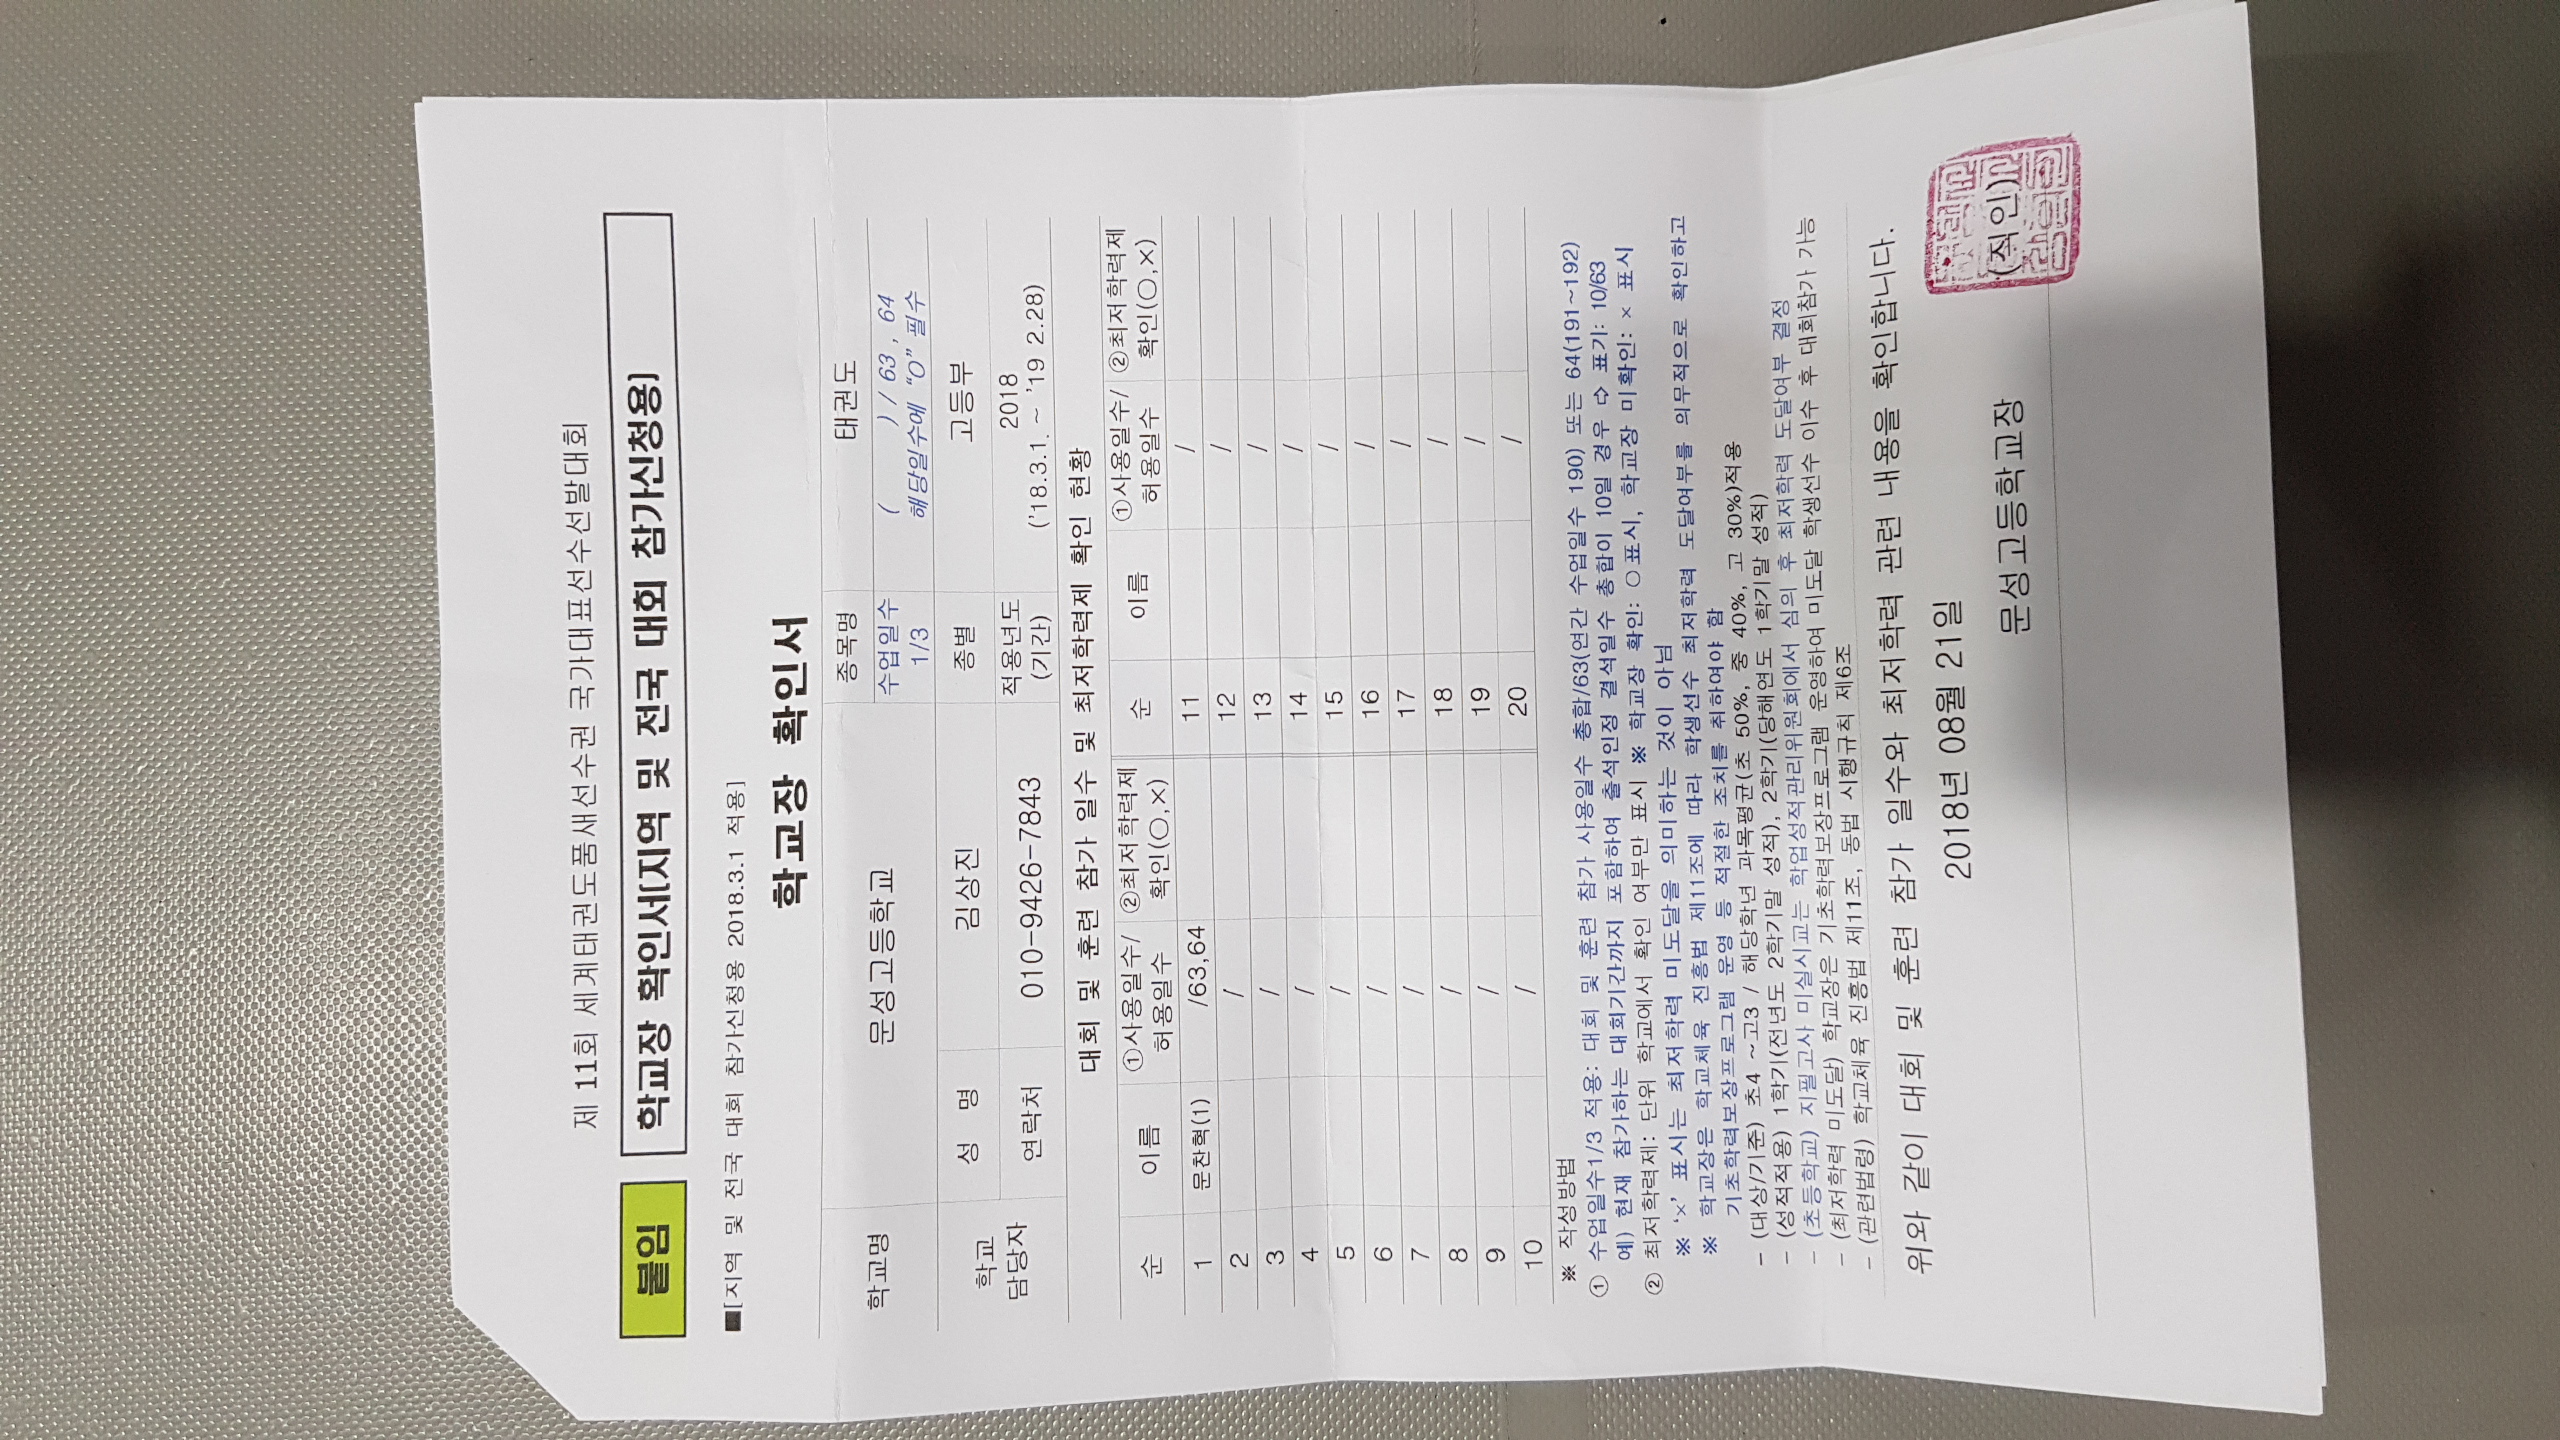 제 11회 세계태권도품새선수권 국가대표선수선발대회
붙임 학교장 확인서[지역 및 전국 대회 참가신청용]
■[지역 및 전국 대회 참가신청용 2018.3.1 적용]
학교장 확인서
학교명 문성고등학교 종목명 태권도
수업일수 1/3 ( ) / 63 , 64
해당일수에 "O" 필수
학교 담당자 성 명 김상진 종별 고등부
연락처 010-9426-7843 적용년도 (기간) 2018
('18.3.1. ~ '19 2.28)
대회 및 훈련 참가 일수 및 최저학력제 확인 현황
순 이름 ①사용일수/허용일수 ②최저학력제 확인(○,×) 순 이름 ①사용일수/허용일수 ②최저학력제 확인(○,×)
1 문찬혁(1) /63,64 11 /
2 / 12 /
3 / 13 /
4 / 14 /
5 / 15 /
6 / 16 /
7 / 17 /
8 / 18 /
9 / 19 /
10 / 20 /
※ 작성방법
① 수업일수1/3 적용: 대회 및 훈련 참가 사용일수 총합/63(연간 수업일수 190) 또는 64(191~192)
예) 현재 참가하는 대회기간까지 포함하여 출석인정 결석일수 총합이 10일 경우 ⇨ 표기: 10/63
② 최저학력제: 단위 학교에서 확인 여부만 표시 ※ 학교장 확인: ○표시, 학교장 미확인: × 표시
※ '×' 표시는 최저학력 미도달을 의미하는 것이 아님
※ 학교장은 학교체육 진흥법 제11조에 따라 학생선수 최저학력 도달여부를 의무적으로 확인하고
기초학력보장프로그램 운영 등 적절한 조치를 취하여야 함
- (대상/기준) 초4 ~고3 / 해당학년 과목평균(초 50%, 중 40%, 고 30%)적용
- (성적적용) 1학기(전년도 2학기말 성적), 2학기(당해연도 1학기말 성적)
- (초등학교) 지필고사 미실시교는 학업성적관리위원회에서 심의 후 최저학력 도달여부 결정
- (최저학력 미도달) 학교장은 기초학력보장프로그램 운영하여 미도달 학생선수 이수 후 대회참가 가능
- (관련법령) 학교체육 진흥법 제11조, 동법 시행규칙 제6조
위와 같이 대회 및 훈련 참가 일수와 최저학력 관련 내용을 확인합니다.
2018년 08월 21일
문성고등학교장 (직인)